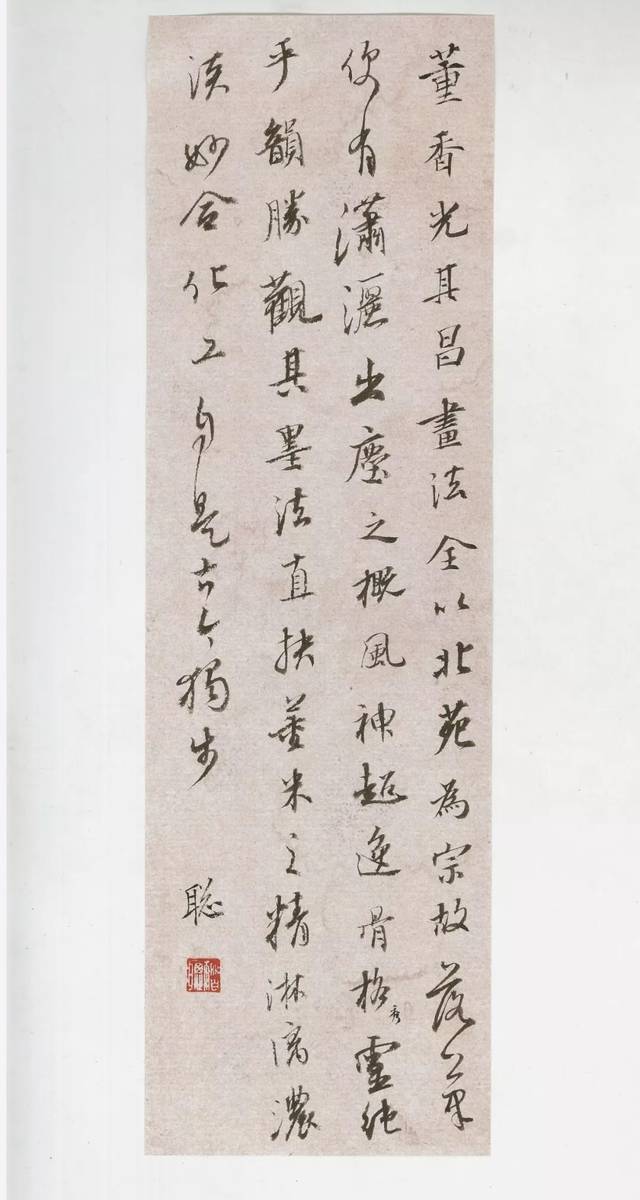 董香光其昌畫法全以北苑為宗故落筆
便有瀟灑出塵之概風神超逸骨格秀靈純
乎韻勝觀其墨法直抉董米之精淋漓濃
淡妙合化工自是古今獨步
聪